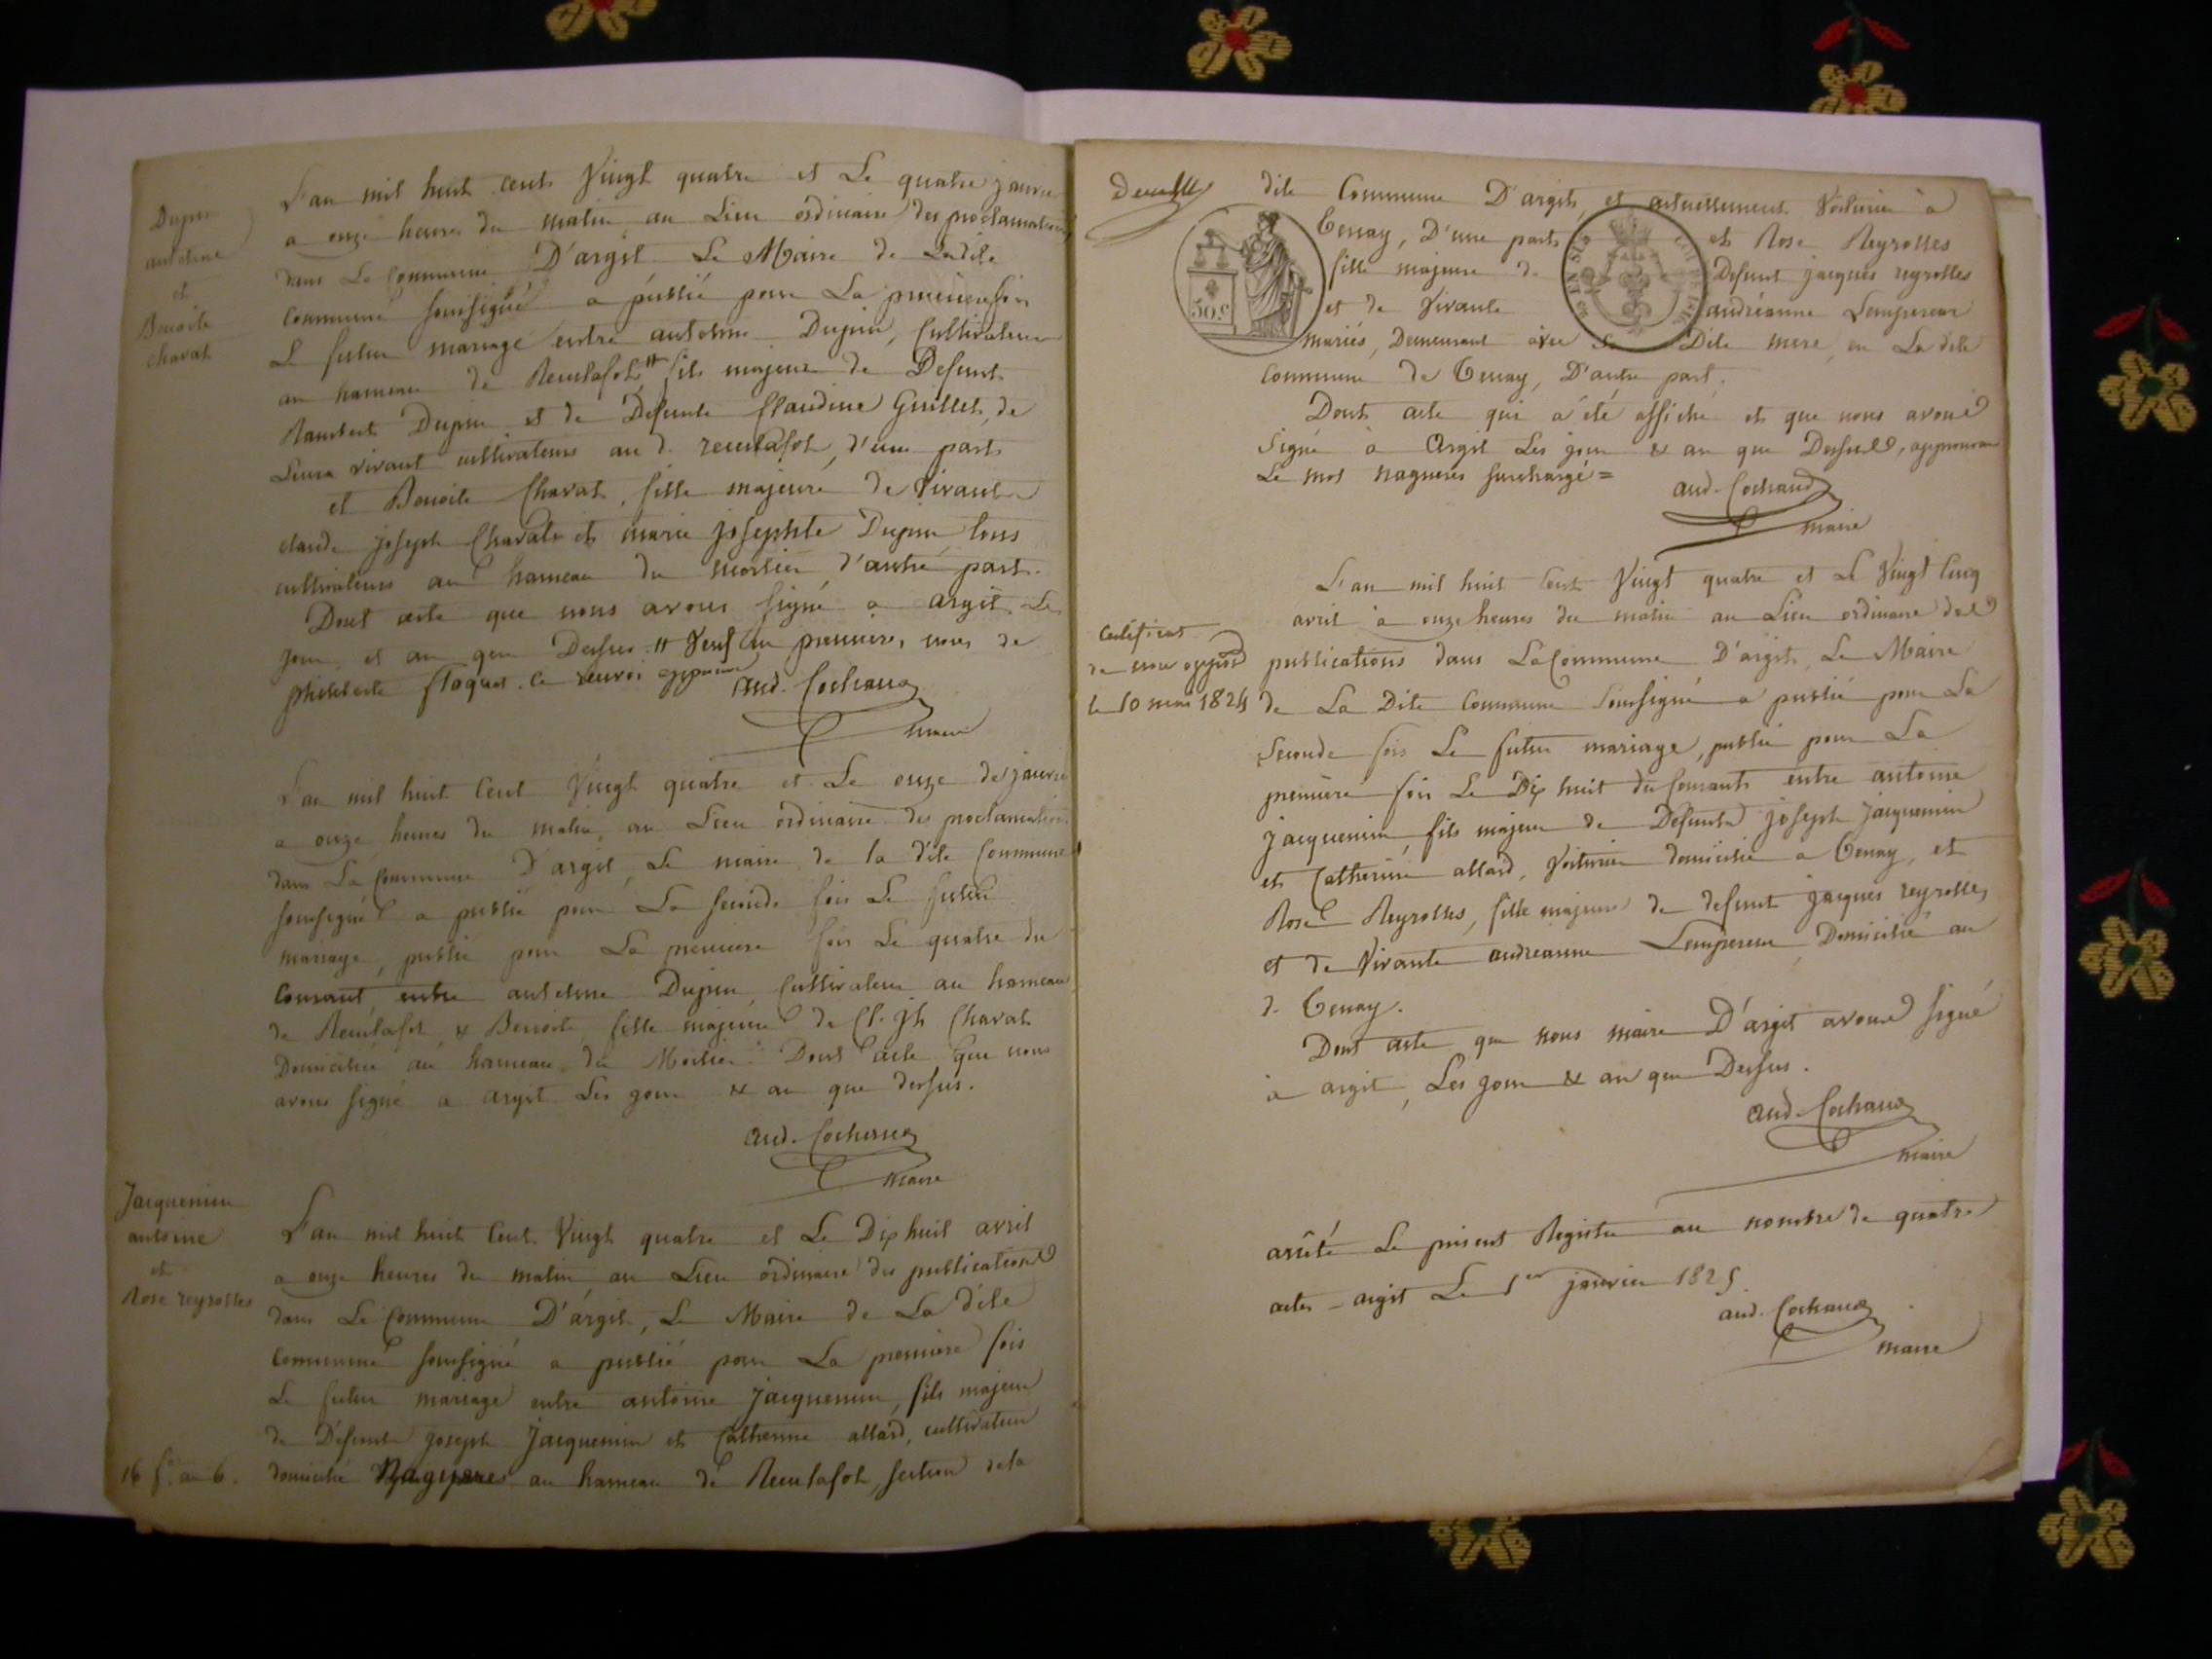 Dupin
antelme
et
Benoite
charat
L'an mil huit cent Vingt quatre et Le quatre janvier
a onze heures du matin, au Lieu ordinaire des proclamations
dans La Commune D'argit Le Maire de Ladite
Commune soussigné a publié pour La premiere fois
Le futur mariage entre antelme Dupin, Cultivateur
au hameau de Reculafol # fils majeur de Defunt
Rambert Dupin et de Defunte Claudine Guillet, de
Leur vivant cultivateurs au d. reculafol, d'une part
et Benoite Charat, fille majeure de Vivants
claude joseph Charat et marie josephte Dupin tous
cultivateurs au hameau du mortier, d'autre part.
Dont acte que nous avons signé a argit Les
jour et an que Dessus. # Veuf en premieres noces de
philiberte floquet. ce renvoi approuvé
aud. Cochaud
maire
L'an mil huit Cent Vingt quatre et Le onze de janvier
a onze heures du matin, au Lieu ordinaire des proclamations
dans La Commune D'argit, Le maire de la dite Commune
soussigné a publié pour La seconde fois Le futur
mariage, publié pour La premiere fois Le quatre du
Courant, entre antelme Dupin, Cultivateur au hameau
de Reculafol, & Benoite fille majeure de Cl. jh Charat
Domiciliée au hameau du Mortier. Dont acte que nous
avons signé a argit Les jour & an que dessus.
aud. Cochaud
maire
Jacquemin
antoine
et
Rose reyrolles
L'an mil huit Cent Vingt quatre et Le Dix huit avril
a onze heures du matin au Lieu ordinaire des publications
dans La Commune D'argit, Le Maire de La dite
Commune soussigné a publié pour La premiere fois
Le futur mariage entre antoine jacquemin, fils majeur
de Défunts joseph Jacquemin et Catherine allard, cultivateur
16 f. an 6. domicilié Nagueres au hameau de Reculafol, section de la
dite Commune D'argit, et actuellement Voiturier à
Tenay, D'une part et Rose Reyrolles
fille majeure de Defunt jacques reyrolles
et de Vivante andréanne Lempereur
mariés, Demeurant avec sa Dite mere, en La dite
Commune de Tenay, D'autre part.
50 c
Dont acte qui a été affiché et que nous avons
signé à Argit Les jour & an que Dessus, approuvant
Le mot nagueres surchargé =
aud. Cochaud
maire
L'an mil huit Cent Vingt quatre et Le Vingt Cinq
avril à onze heures du matin au Lieu ordinaire des
publications dans La Commune D'argit, Le Maire
Certificat
de non opposon
le 10 mai 1824
de La Dite Commune soussigné a publié pour La
seconde fois Le futur mariage, publié pour La
premiere fois Le Dix huit du Courant, entre antoine
jacquemin, fils majeur de Defunts joseph jacquemin
et Catherine allard, Voiturier domicilié a Tenay, et
Rose Reyrolles, fille majeure de defunt jacques reyrolles
et de Vivante andréanne Lempereur, Domiciliée au
d. Tenay.
Dont acte que nous maire D'argit avons signé
à argit, Les jour & an que Dessus.
aud. Cochaud
maire
arrêté Le présent Registre au nombre de quatre
actes - argit Le 1er janvier 1825
aud. Cochaud
maire